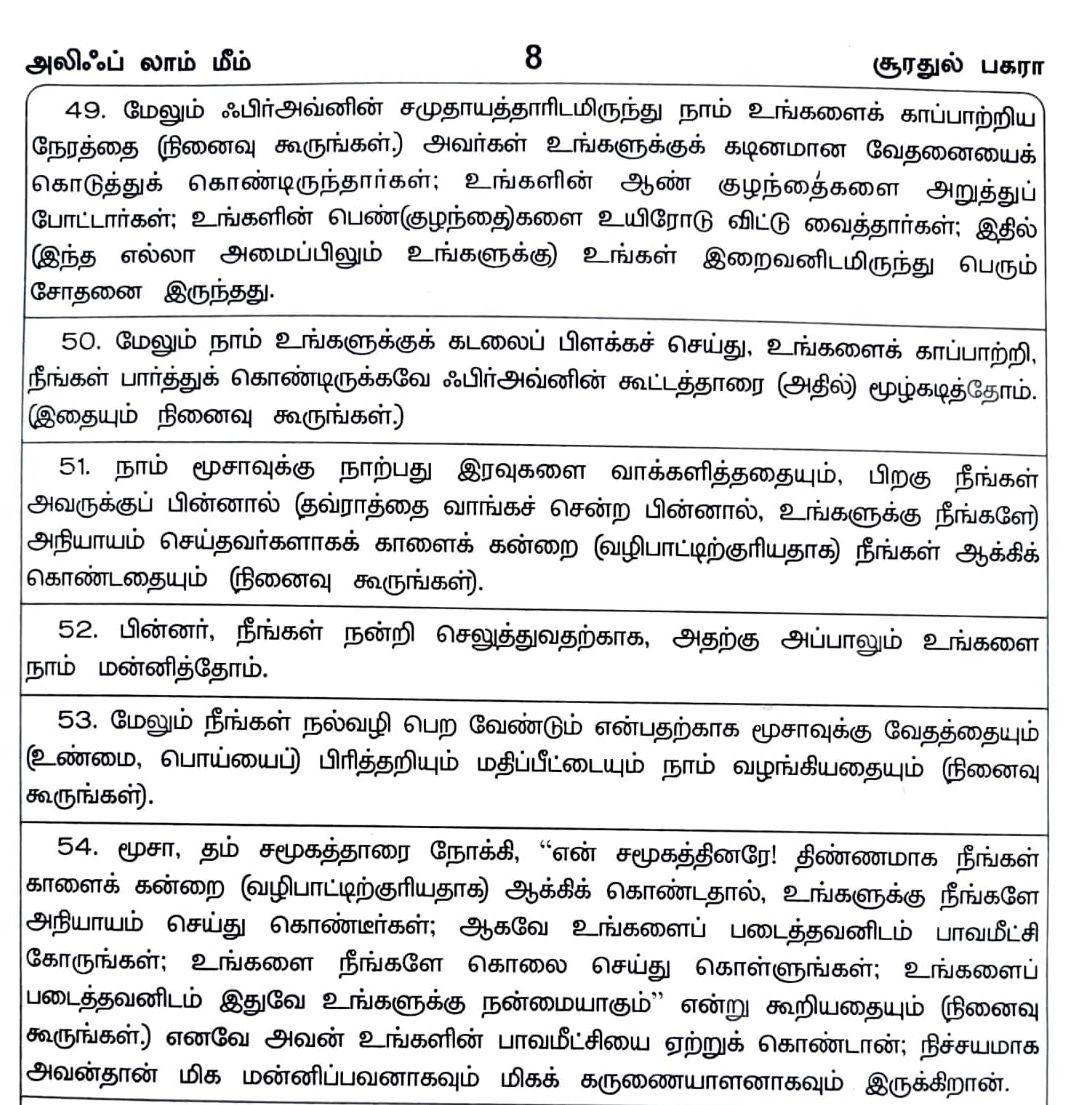 அலிஃப் லாம் மீம் 8 சூரதுல் பகரா
49. மேலும் ஃபிர்அவ்னின் சமுதாயத்தாரிடமிருந்து நாம் உங்களைக் காப்பாற்றிய
நேரத்தை (நினைவு கூருங்கள்.) அவர்கள் உங்களுக்குக் கடினமான வேதனையைக்
கொடுத்துக் கொண்டிருந்தார்கள்; உங்களின் ஆண் குழந்தைகளை அறுத்துப்
போட்டார்கள்; உங்களின் பெண்(குழந்தை)களை உயிரோடு விட்டு வைத்தார்கள்; இதில்
(இந்த எல்லா அமைப்பிலும் உங்களுக்கு) உங்கள் இறைவனிடமிருந்து பெரும்
சோதனை இருந்தது.
50. மேலும் நாம் உங்களுக்குக் கடலைப் பிளக்கச் செய்து, உங்களைக் காப்பாற்றி,
நீங்கள் பார்த்துக் கொண்டிருக்கவே ஃபிர்அவ்னின் கூட்டத்தாரை (அதில்) மூழ்கடித்தோம்.
(இதையும் நினைவு கூருங்கள்.)
51. நாம் மூசாவுக்கு நாற்பது இரவுகளை வாக்களித்ததையும், பிறகு நீங்கள்
அவருக்குப் பின்னால் (தவ்ராத்தை வாங்கச் சென்ற பின்னால், உங்களுக்கு நீங்களே)
அநியாயம் செய்தவர்களாகக் காளைக் கன்றை (வழிபாட்டிற்குரியதாக) நீங்கள் ஆக்கிக்
கொண்டதையும் (நினைவு கூருங்கள்).
52. பின்னர், நீங்கள் நன்றி செலுத்துவதற்காக, அதற்கு அப்பாலும் உங்களை
நாம் மன்னித்தோம்.
53. மேலும் நீங்கள் நல்வழி பெற வேண்டும் என்பதற்காக மூசாவுக்கு வேதத்தையும்
(உண்மை, பொய்யைப்) பிரித்தறியும் மதிப்பீட்டையும் நாம் வழங்கியதையும் (நினைவு
கூருங்கள்).
54. மூசா, தம் சமூகத்தாரை நோக்கி, “என் சமூகத்தினரே! திண்ணமாக நீங்கள்
காளைக் கன்றை (வழிபாட்டிற்குரியதாக) ஆக்கிக் கொண்டதால், உங்களுக்கு நீங்களே
அநியாயம் செய்து கொண்டீர்கள்; ஆகவே உங்களைப் படைத்தவனிடம் பாவமீட்சி
கோருங்கள்; உங்களை நீங்களே கொலை செய்து கொள்ளுங்கள்; உங்களைப்
படைத்தவனிடம் இதுவே உங்களுக்கு நன்மையாகும்” என்று கூறியதையும் (நினைவு
கூருங்கள்.) எனவே அவன் உங்களின் பாவமீட்சியை ஏற்றுக் கொண்டான்; நிச்சயமாக
அவன்தான் மிக மன்னிப்பவனாகவும் மிகக் கருணையாளனாகவும் இருக்கிறான்.